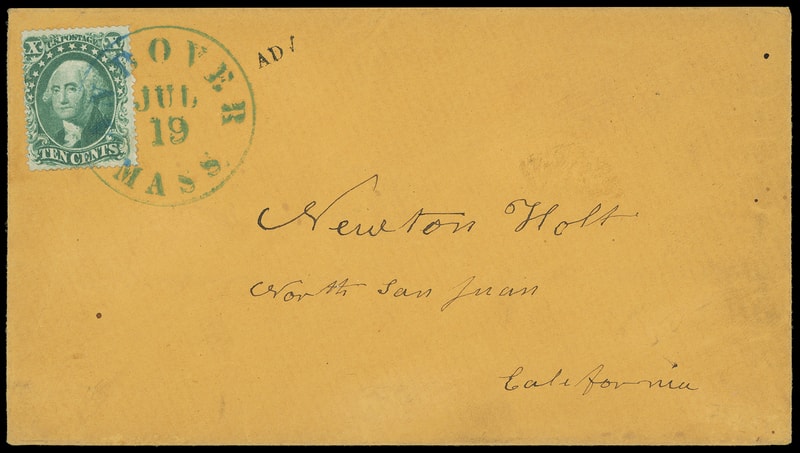 X U.S. POSTAGE X
TEN CENTS
ANDOVER
JUL
19
MASS.
Newton Holt
North San Juan
California